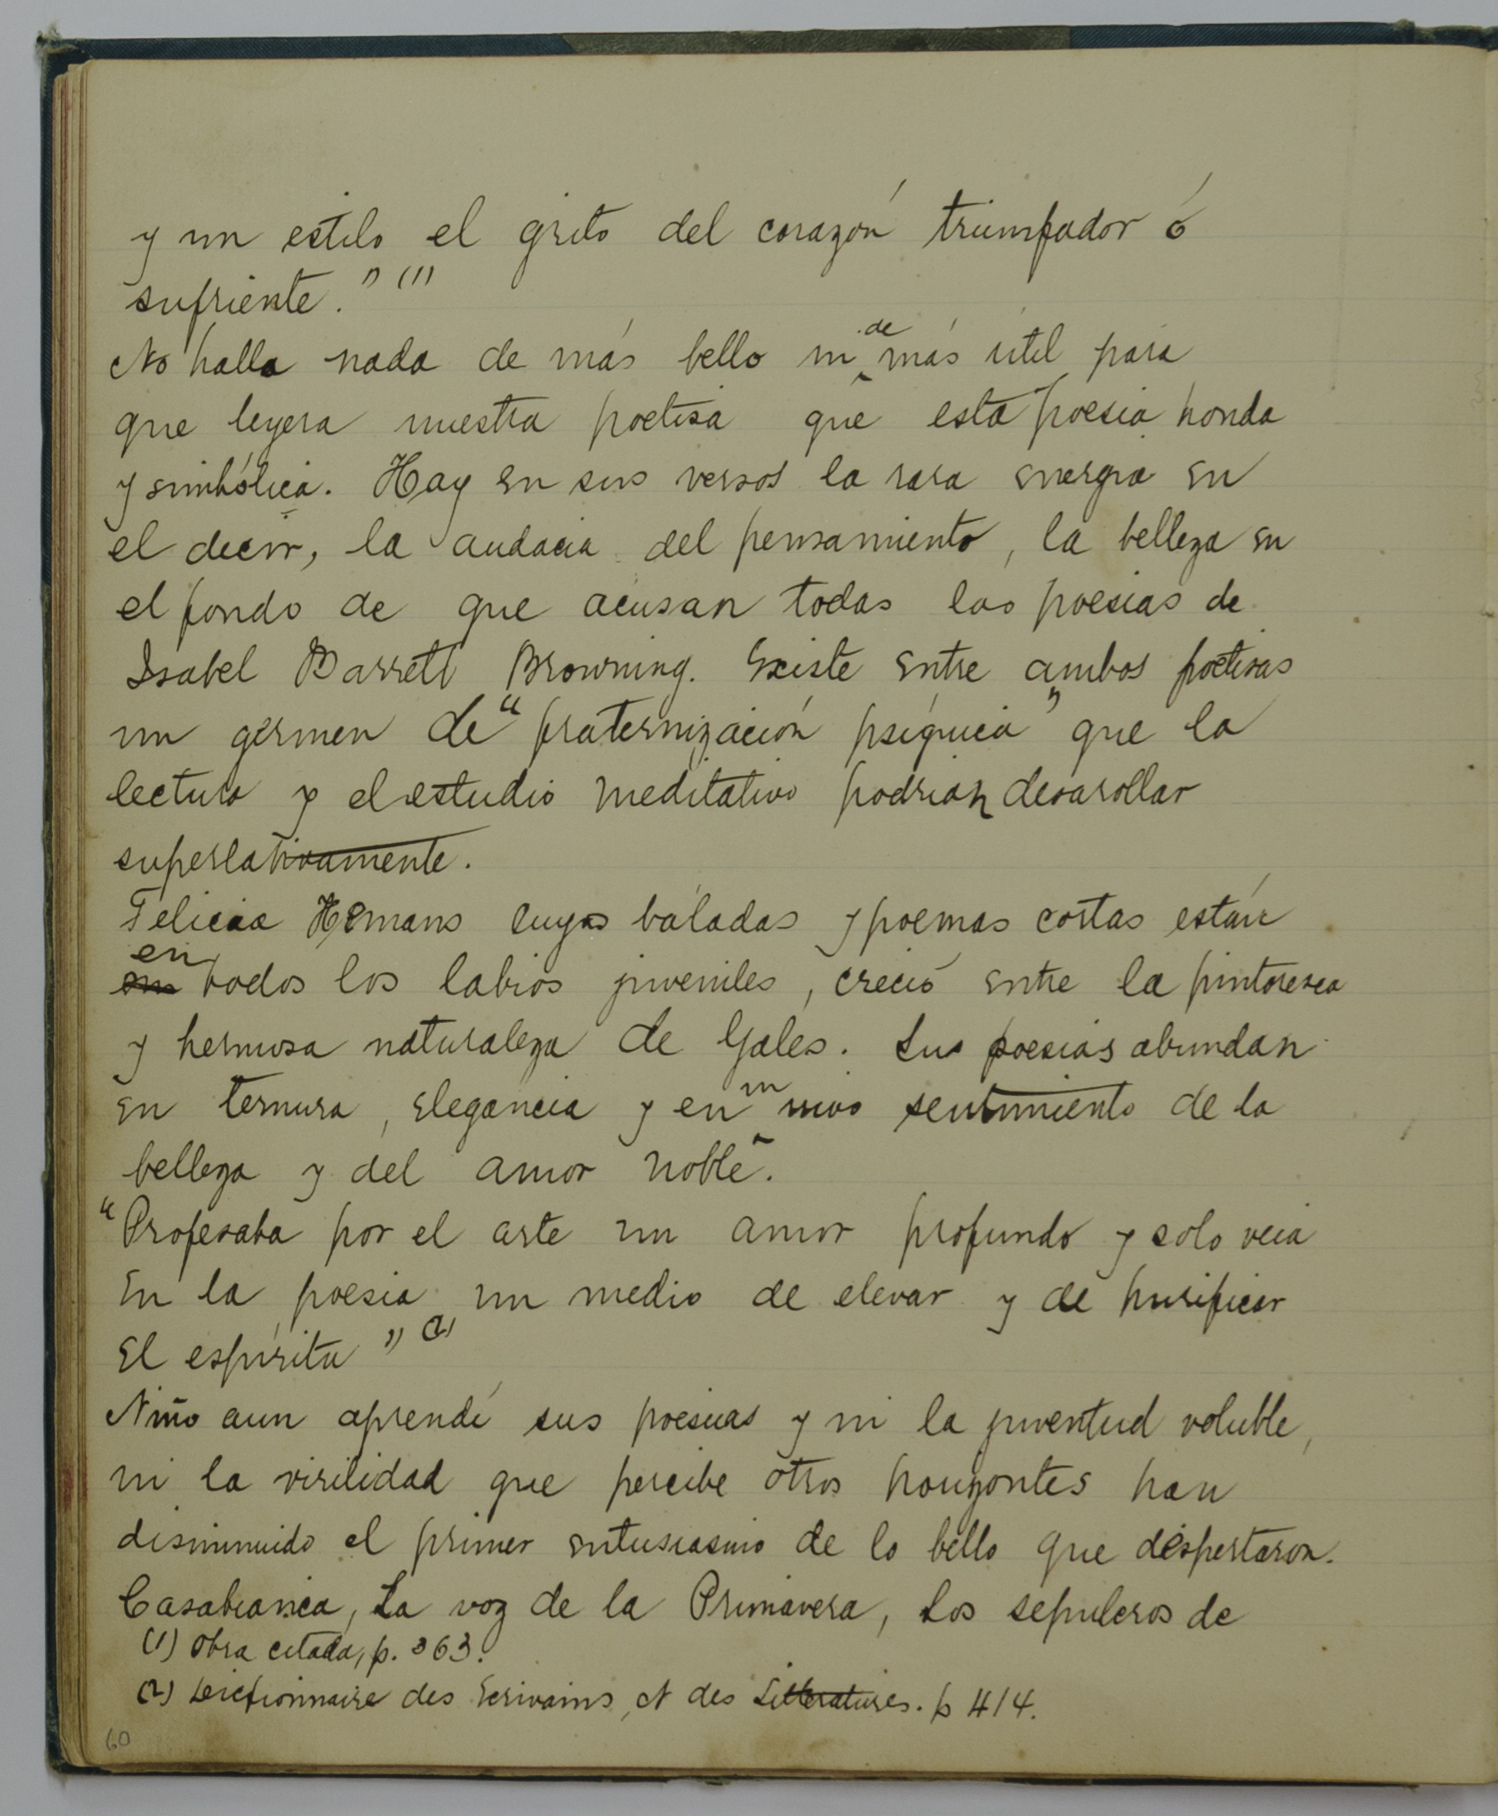 y un estilo el grito del corazón triumfador ó
sufriente." (1)
No halla nada de más bello ni de más útil para
que leyera nuestra poetisa que esta poesia honda
y simbólica. Hay en sus versos la rara energia en
el decir, la audacia del pensamiento, la belleza en
el fondo de que acusan todas las poesias de
Isabel Barrett Browning. Existe entre ambas poetisas
un gérmen de "fraternización psíquica" que la
lectura y el estudio meditativo podrian desarollar
superlativamente.
Felicia Hemans cuyas báladas y poemas cortas están
en todos los labios juveniles, creció entre la pintoresca
y hermosa naturaleza de Gales. Sus poesias abundan
en ternura, elegancia y en un vivo sentimiento de la
belleza y del amor noble.
"Profesaba por el arte un amor profundo y solo veia
en la poesia un medio de elevar y de purificar
el espíritu" (2)
Niño aun aprendí sus poesias y ni la juventud voluble,
ni la virilidad que percibe otros horizontes han
disminuido el primer entusiasmo de lo bello que despertaron.
Casabianca, La voz de la Primavera, Los sepulcros de
(1) Obra citada, p. 363.
(2) Dictionnaire des Ecrivains et des Litteratures. p 414.
60